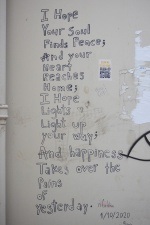 I Hope
Your Soul
Finds Peace;
And your
Heart
Reaches
Home;
I Hope
Lights
Light up
your way;
And happiness
Takes over the
Pains
of
yesterday.
9/10/2020